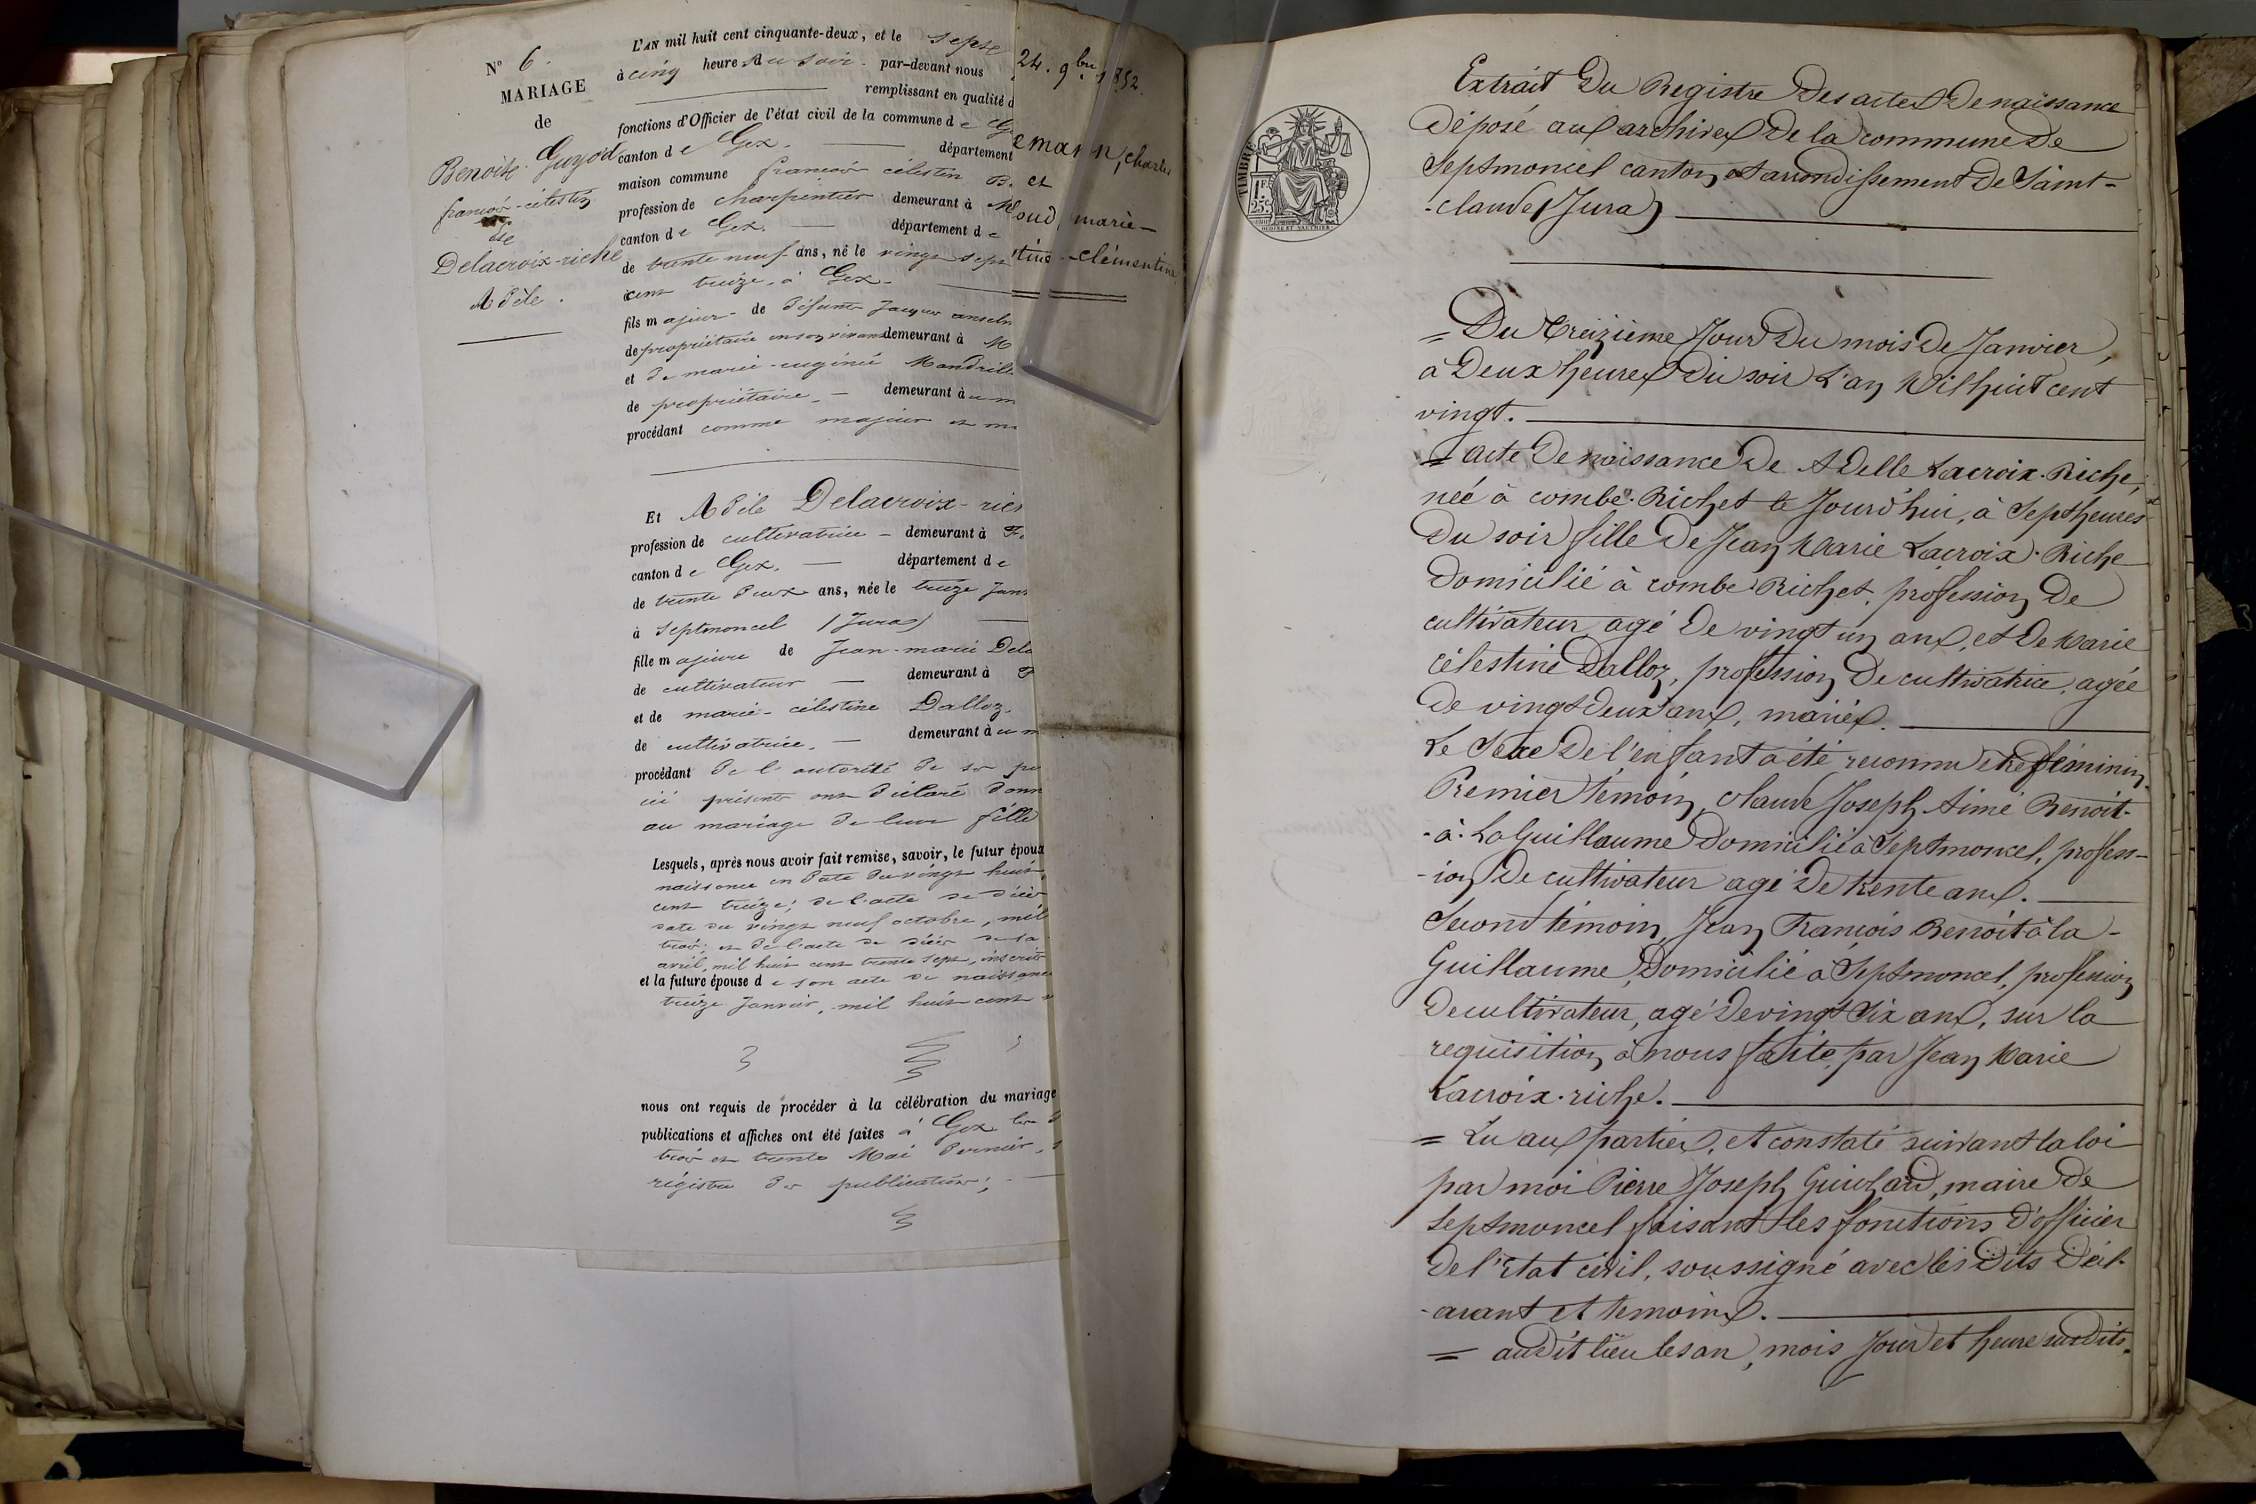 N° 6.
MARIAGE
de
Benoite-Guyod
françois-célestin
et
Delacroix-riche
Adèle.
L'AN mil huit cent cinquante-deux, et le sept
à cinq heures du soir. par-devant nous
remplissant en qualité d
fonctions d'Officier de l'état civil de la commune de Ge
canton de Gex. département
maison commune françois célestin B.
profession de charpentier demeurant à
canton de Gex. département de
de trente neuf ans, né le vingt sept
cent treize, à Gex.
fils majeur de défunt Jacques anselm
de propriétaire en son vivant demeurant à M
et de marie-eugénie Mandrill
de propriétaire. demeurant à
procédant comme majeur et
Et Adèle Delacroix-ric
profession de cultivatrice demeurant à
canton de Gex. département de
de trente deux ans, née le treize Janv
à Septmoncel (Jura)
fille majeure de Jean-marie Dela
de cultivateur demeurant à
et de marie-célestine Dalloz.
de cultivatrice. demeurant à
procédant de l'autorité de
ici présents ont déclaré donn
au mariage de leur fille
Lesquels, après nous avoir fait remise, savoir, le futur époux
naissance en date du vingt huit
cent treize; de l'acte de décès
date du vingt neuf octobre, mil
trois; et de l'acte de décès de sa
avril, mil huit cent trente sept, inscrits
et la future épouse de son acte de naissance
treize Janvier, mil huit cent
nous ont requis de procéder à la célébration du mariage
publications et affiches ont été faites à Gex les
trois et trente Mai dernier,
régistre de publications;
24. 9bre 1852.
emann, charles
et
oud, marie-
tine-clémentine
TIMBRE
1 F.
25 c
Extrait Du Registre Des actes De naissance
Déposé aux archives De la commune De
Septmoncel canton et arrondissement De Saint-
-claude (Jura)
= Du treizième Jour Du mois De Janvier,
à Deux heures Du soir L'an Mil huit cent
vingt.
= acte De naissance De Adelle Lacroix-Riche,
née à combe-Richet le Jourd'hui, à Sept heures
Du soir fille De Jean Marie Lacroix-Riche
Domicilié à combe Richet, profession De
cultivateur agé De vingt un ans, et De Marie
célestine Dalloz, profession De cultivatrice, agée
De vingt Deux ans, mariés.
Le Sexe De l'enfant a été reconnu être féminin.
Premier témoin, claude Joseph Aimé Benoit-
-à-La Guillaume Domicilié à Septmoncel, profess-
-ion De cultivateur agé De trente ans.
Second témoin, Jean François Benoit à la-
Guillaume, Domicilié à Septmoncel, profession
De cultivateur, agé De vingt Six ans, sur la
requisition à nous faite par Jean Marie
Lacroix-riche.
= Lu aux parties, et constaté suivant la loi
par moi Pierre Joseph Guichard, maire De
Septmoncel faisant les fonctions D'officier
De l'état civil, soussigné avec les Dits Décl-
-arant et temoins.
= audit lieu les an, mois Jour et heure susdits.